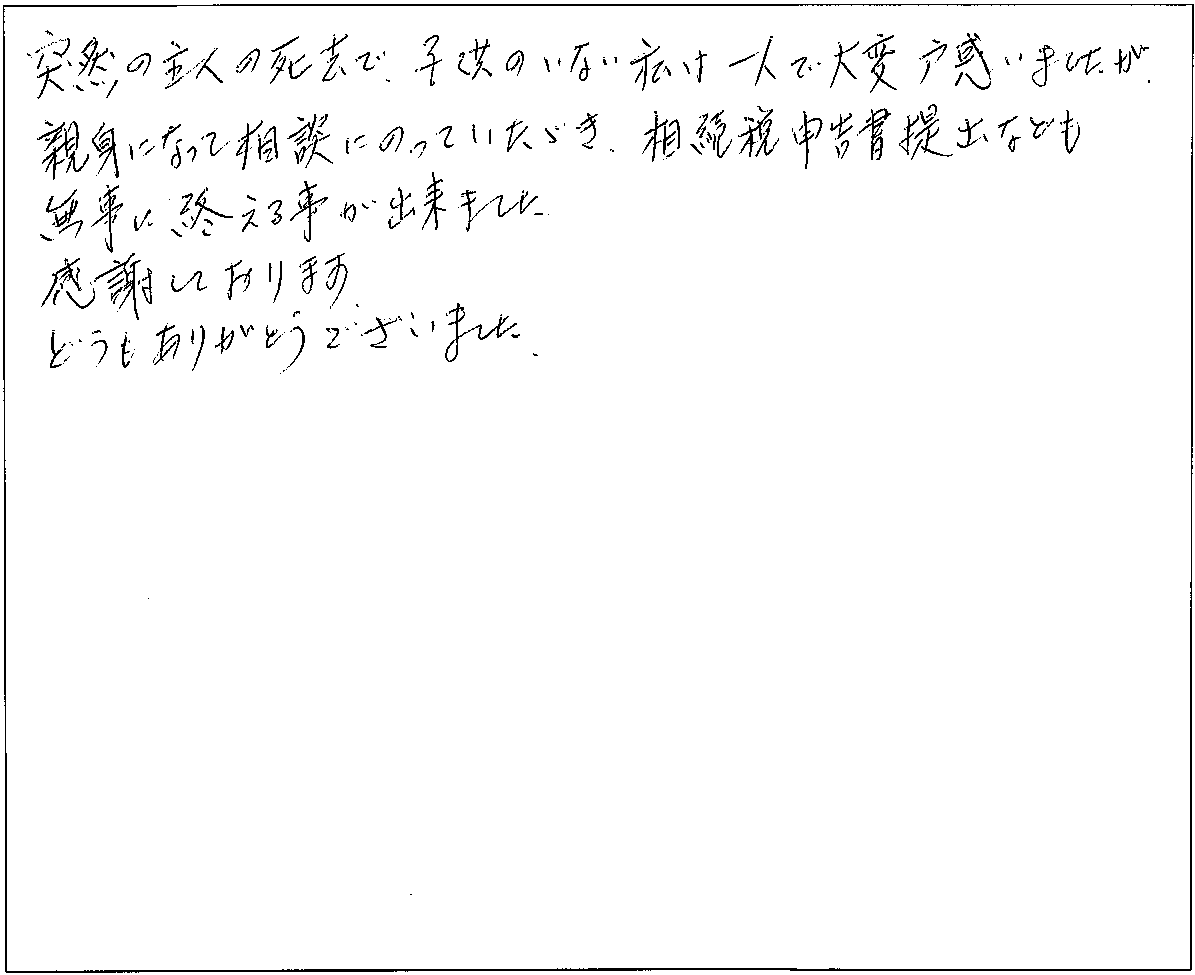 突然の主人の死去で、子供のいない私は一人で大変戸惑いましたが、
親身になって相談にのっていただき、相続税申告書提出なども
無事に終える事が出来ました。
感謝しております。
どうもありがとうございました。